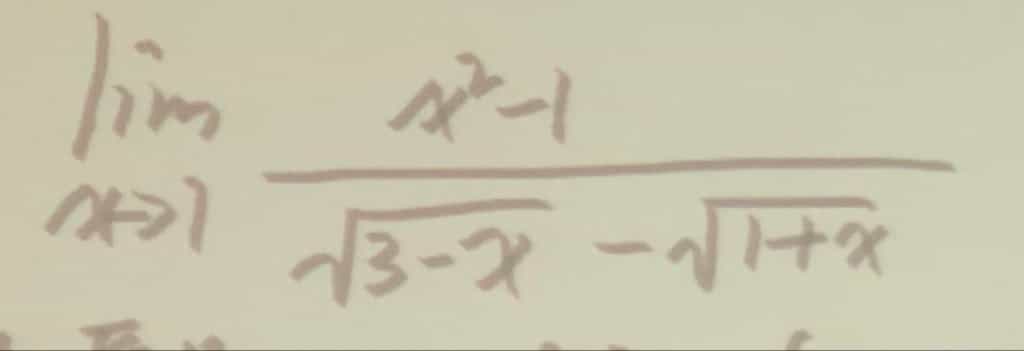 lim x→1 (x²-1)/(√(3-x) - √(1+x))